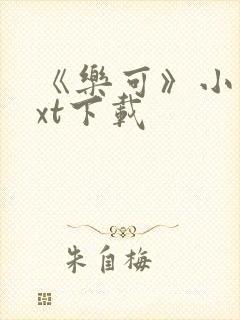 《樂可》小
xt下載
朱自梅